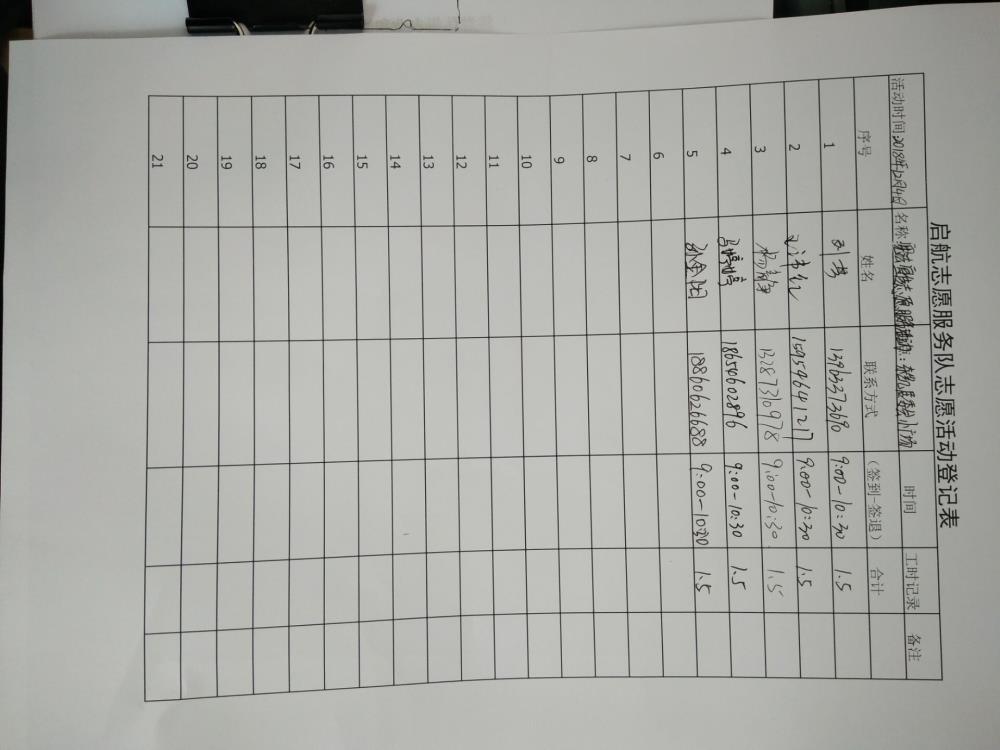 启航志愿服务队志愿活动登记表
活动时间:2018年12月4日 名称: 志愿服务活动 : 小广场 时间 工时记录 备注
序号 姓名 联系方式 (签到-签退) 合计
1 刘 13963373690 9:00-10:30 1.5
2 15954641217 9:00-10:30 1.5
3 杨 13287310978 9:00-10:30. 1.5
4 马婷婷 18654602896 9:00-10:30 1.5
5 孙 阳 18860626688 9:00-10:30 1.5
6
7
8
9
10
11
12
13
14
15
16
17
18
19
20
21